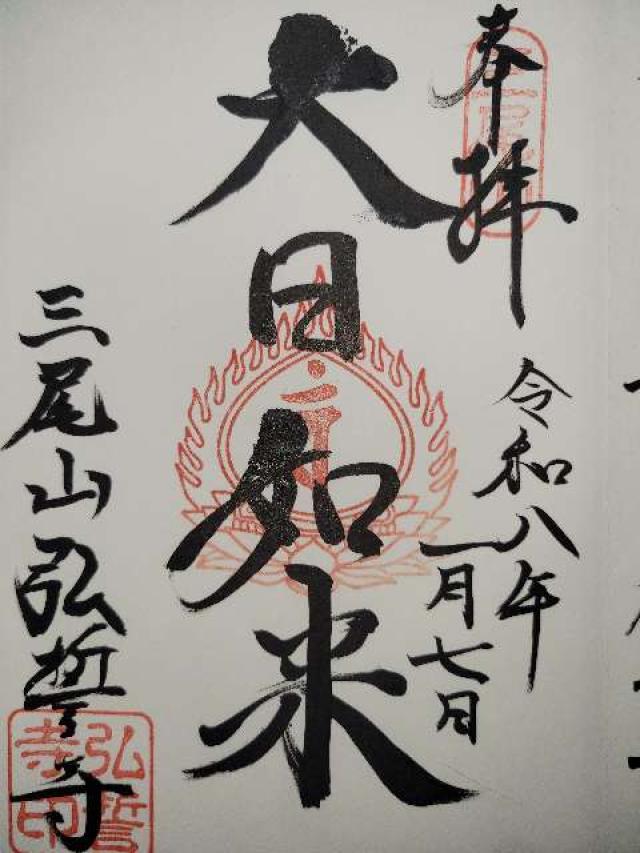 奉拝
令和八年
一月七日
大日如来
三尾山弘誓寺
弘誓
寺印